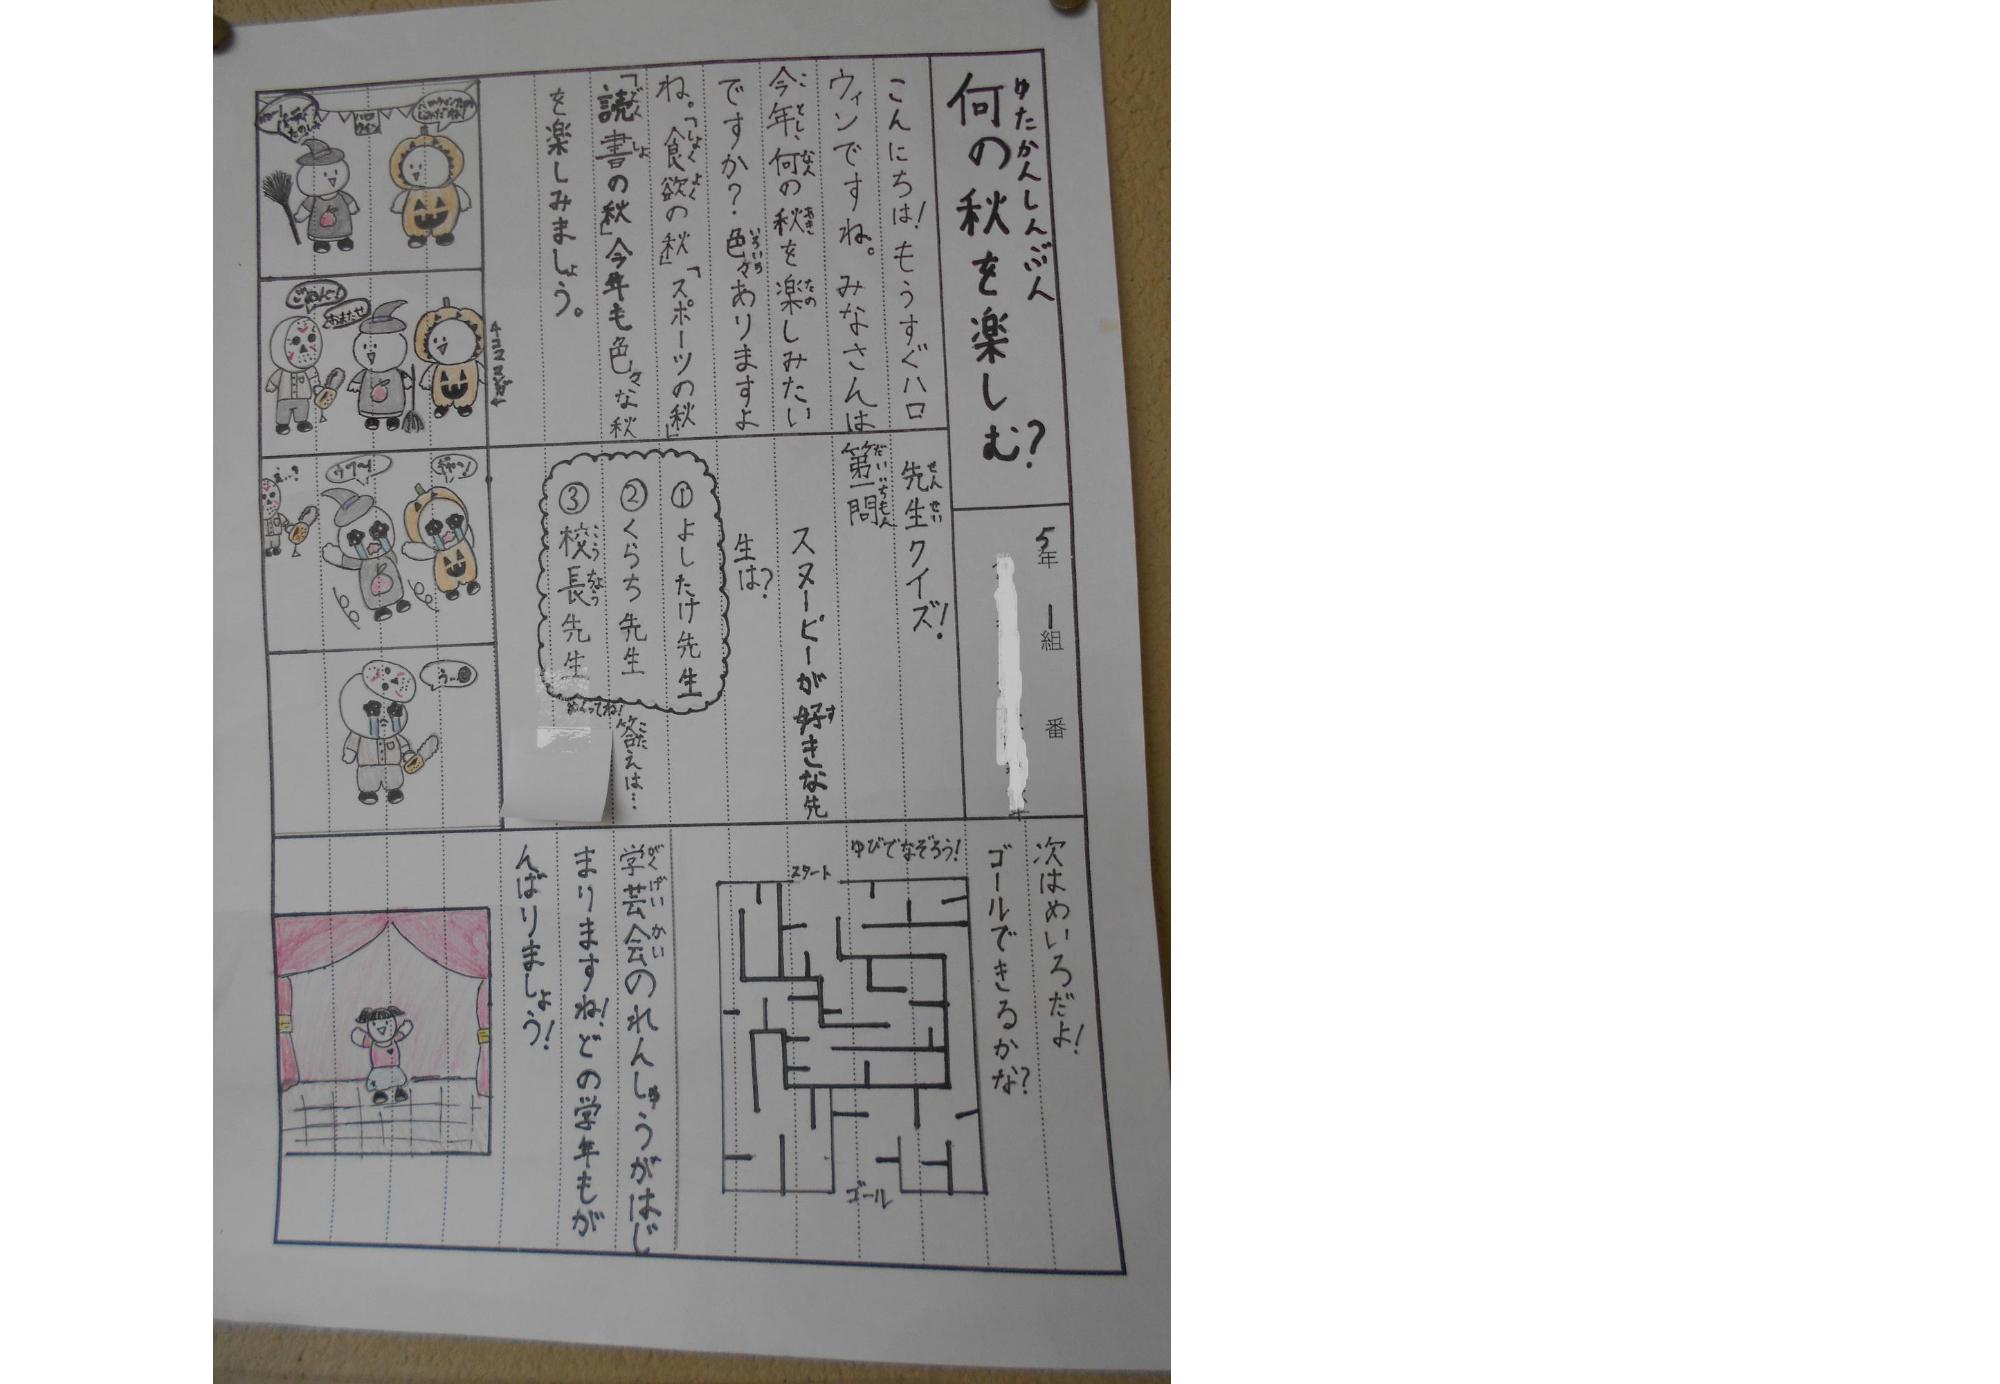 ゆたかんしんぶん
何の秋を楽しむ?
5年
1組
番
こんにちは!もうすぐハロ
ウィンですね。みなさんは
今年、何の秋を楽しみたい
ですか?色々ありますよ
ね。「食欲の秋」「スポーツの秋」
「読書の秋」今年も色々な秋
を楽しみましょう。
先生クイズ!
第一問
スヌーピーが好きな先
生は?
①よしたけ先生
②くらち先生
③校長先生
答えは…
めくってね!
次はめいろだよ!
ゴールできるかな?
ゆびでなぞろう!
スタート
ゴール
学芸会のれんしゅうがはじ
まりますね!どの学年もが
んばりましょう!
4コママンガ
ハロウィン
ごめんに!
おまたせ
ギャー!
ウワー!
え…?
うー